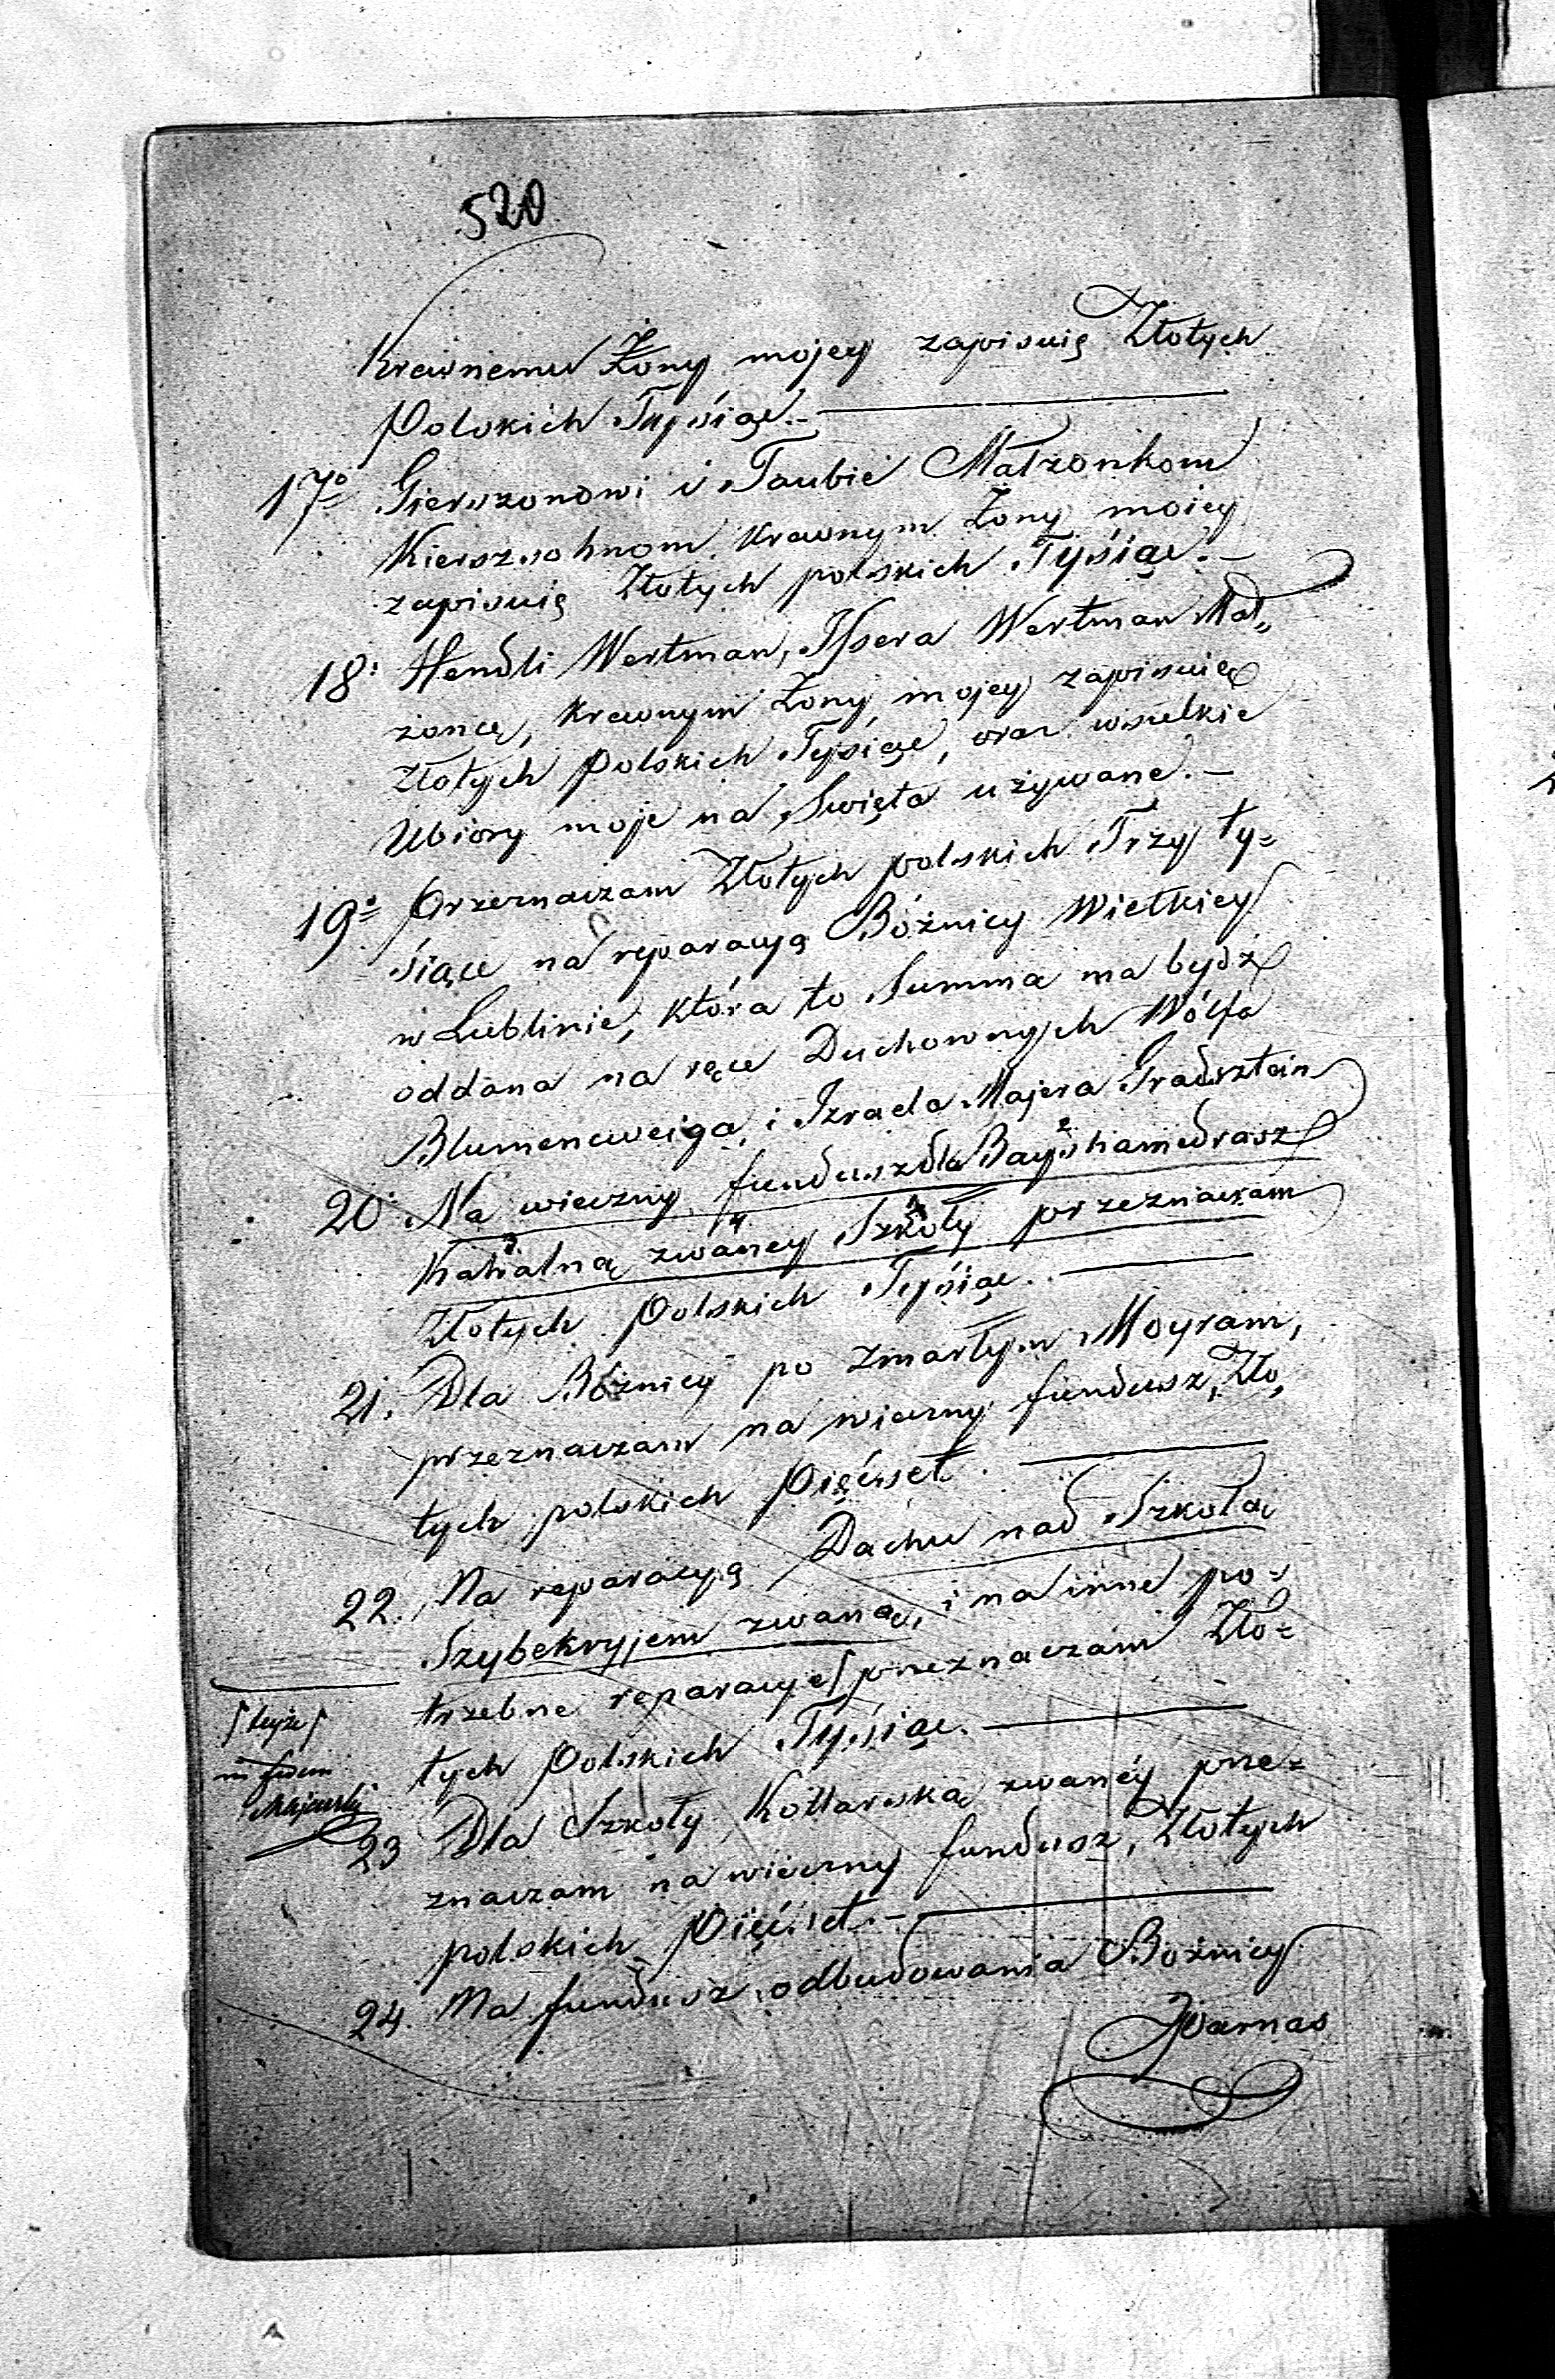 520
Krewnemu Żony mojey zapisuię Złotych
Polskich Tysiąc.—
17º Gierszonowi i Taubie Małżonkom
Kierszsohnom, Krewnym Żony moiey
zapisuię Złotych polskich Tysiąc.—
18. Hendli Wertman, Issera Wertman Mał„
żonce, Krewnym Żony mojey zapisuię
Złotych Polskich Tysiąc, oraz wszelkie
Ubiory moje na Swięta używane.—
19º Przeznaczam Złotych polskich Trzy ty=
siące na reparacyą Bóżnicy Wielkiey
w Lublinie, która to Summa ma bydź
oddana na ręce Duchownych Wólfa
Blumencweiga, i Izraela Majera Gradsztein
20. Na wieczny fundusz dla Bayshamedrasz
Kahalną zwaney Szkoły przeznaczam
Złotych Polskich Tysiąc.
21. Dla Bóżnicy po zmarłym Moyram,
przeznaczam na wieczny fundusz, Zło,
tych polskich Pięćset.
22. Na reparacyą Dachu nad Szkołą
Szybekryjem zwaną, i na inne po=
trzebne reparacye ſ przeznaczam Zło=
tych Polskich Tysiąc.
ſ teyże ſ
23 Dla Szkoły Kotlarską zwaney prze=
znaczam na wieczny fundusz, Złotych
polskich Pięćset.—
24. Na fundusz odbudowania Bożnicy
Parnas